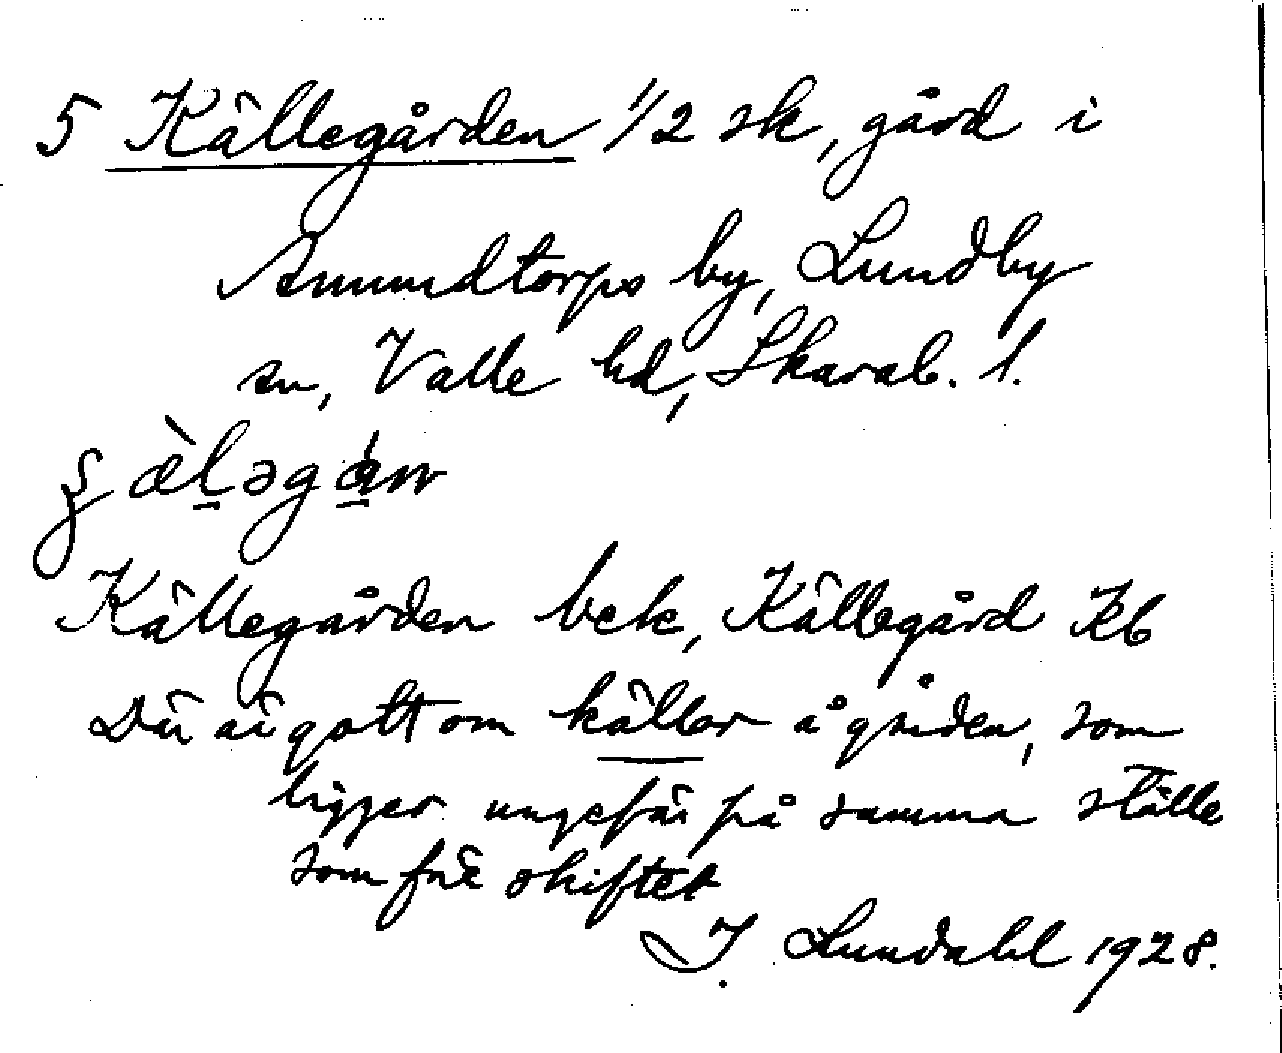 5 Källegården 1/2 sk, gård i
Amundtorps by, Lundby
sn, Valle hd, Skarab. l.
Källegården bek, Källegård Kb
Där är gott om källor å gården, som
ligger ungefär på samma ställe
som före skiftet
I. Lundahl 1928.